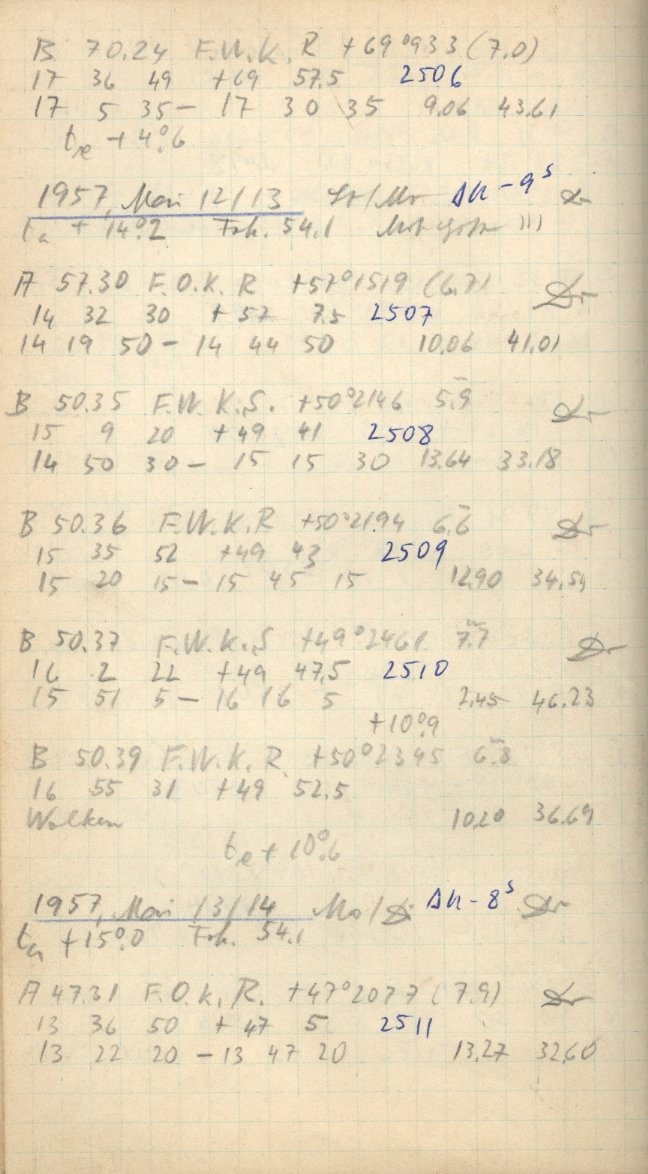 B 70.24 F.W.K. R +69°933 (7.0)
17 36 49 +69 57.5 2506
17 5 35 – 17 30 35 9.06 43.61
te +4°.6
1957, Mai 12/13 Δu – 9s
ta +14°.2 Fok. 54.1
A 57.30 F.O.K. R +57°1519 (6.7)
14 32 30 +57 7.5 2507
14 19 50 – 14 44 50 10.06 41.01
B 50.35 F.W.K.S. +50°2146 5.9
15 9 20 +49 41 2508
14 50 30 – 15 15 30 13.64 33.18
B 50.36 F.W.K.R +50°2194 6.6
15 35 52 +49 43 2509
15 20 15 – 15 45 15 12.90 34.54
B 50.37 F.W.K.S +49°2461 7.7
16 2 22 +49 47.5 2510
15 51 5 – 16 16 5 2.45 46.23
+10°.9
B 50.39 F.W.K.R. +50°2345 6.8
16 55 31 +49 52.5
Wolken 10.20 36.69
te +10°.6
1957, Mai 13/14 Δu – 8s
ta +15°.0 Fok. 54.1
A 47.31 F.O.K. R. +47°2077 (7.9)
13 36 50 +47 5 2511
13 22 20 – 13 47 20 13.27 32.60